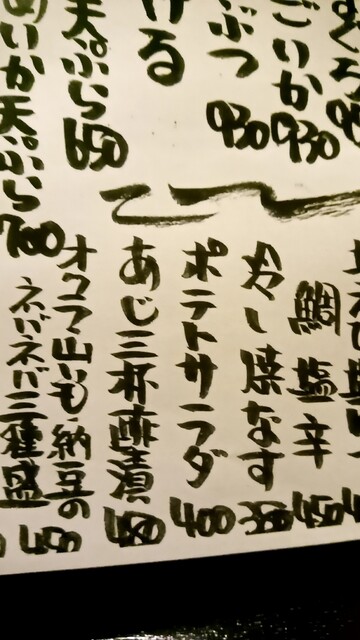 ごいか 930
ぶつ 930
ける
天ぷら 650
めいか天ぷら 700
鯛塩辛 450
冷し焼なす 350
ポテトサラダ 400
あじ三杯酢漬 480
オクラ山いも納豆の
ネバネバ三種盛 450